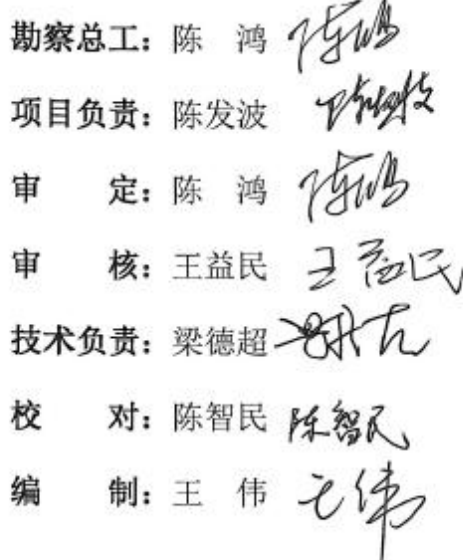 勘察总工：陈　鸿 陈鸿
项目负责：陈发波 陈发波
审　　定：陈　鸿 陈鸿
审　　核：王益民 王益民
技术负责：梁德超
校　　对：陈智民 陈智民
编　　制：王　伟 王伟